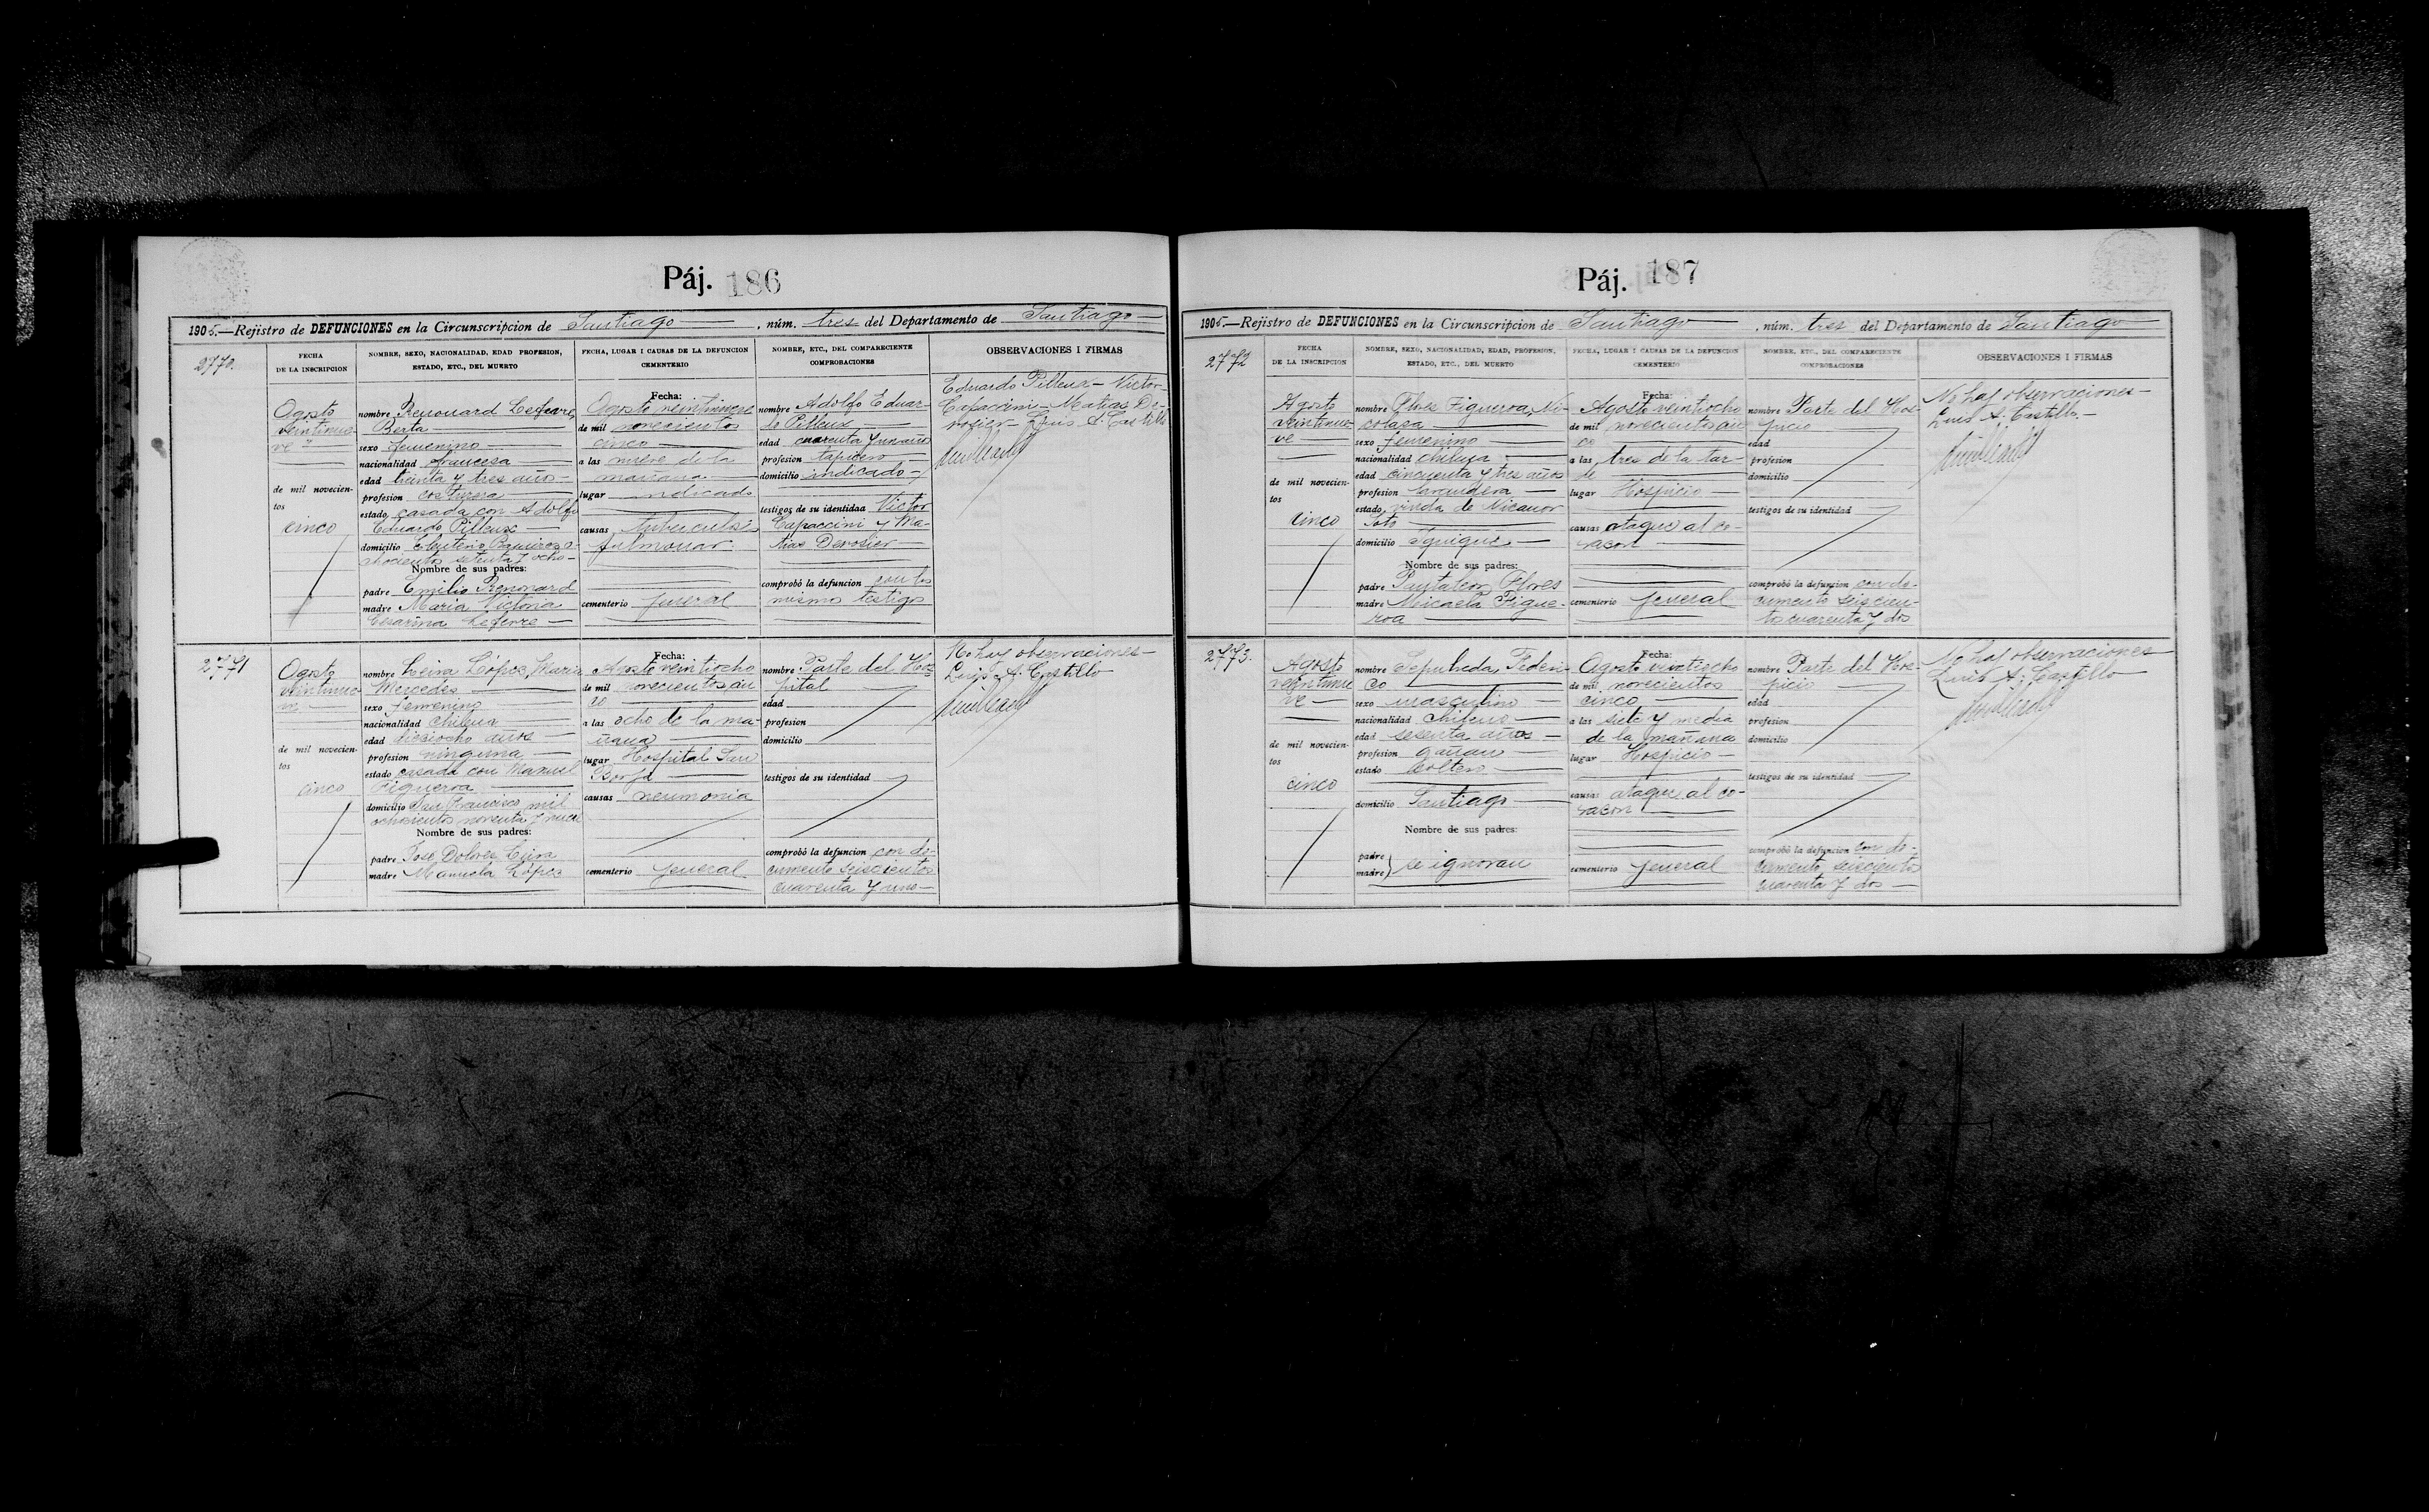 Páj. 186
1905.—Rejistro de DEFUNCIONES en la Circunscripcion de Santiago, núm. tres del Departamento de Santiago
FECHA
DE LA INSCRIPCION
NOMBRE, SEXO, NACIONALIDAD, EDAD PROFESION,
ESTADO, ETC., DEL MUERTO
FECHA, LUGAR I CAUSAS DE LA DEFUNCION
CEMENTERIO
NOMBRE, ETC., DEL COMPARECIENTE
COMPROBACIONES
OBSERVACIONES I FIRMAS
2770.
Agosto
veintinue-
ve
de mil novecien-
tos
cinco
nombre Renouard Lefevre,
Berta
sexo femenino
nacionalidad francesa
edad treinta y tres años
profesion costurera
estado casada con Adolfo
Eduardo Pilleux
domicilio Eleuterio Ramirez o-
chocientos setenta y ocho
Nombre de sus padres:
padre Emilio Renouard
madre Maria Victoria
Cesarina Lefevre
Fecha:
Agosto veintinueve
de mil novecientos
cinco
a las nueve de la
mañana
lugar indicado
causas tuberculosis
pulmonar
cementerio Jeneral
nombre Adolfo Eduar-
do Pilleux
edad cuarenta y un años
profesion tapicero
domicilio indicado
testigos de su identidad Victor
Capaccini y Ma-
tias Derosier
comprobó la defuncion con los
mismo testigos
Eduardo Pilleux — Victor
Capaccini — Matias De-
rosier — Luis A. Castillo
2771
Agosto
veintinue-
ve
de mil novecien-
tos
cinco
nombre Leiva López, Maria
Mercedes
sexo femenino
nacionalidad chilena
edad dieciocho años
profesion ninguna
estado casada con Manuel
Figueroa
domicilio San Francisco mil
ochocientos noventa y nueve
Nombre de sus padres:
padre José Dolores Leiva
madre Manuela López
Fecha:
Agosto veintiocho
de mil novecientos cin
co
a las ocho de la ma-
ñana
lugar Hospital San
Borja
causas neumonia
cementerio Jeneral
nombre Parte del Hos-
pital
edad
profesion
domicilio
testigos de su identidad
comprobó la defuncion con do-
cumento seiscientos
cuarenta y uno
No hay observaciones—
Luis A. Castillo
Páj. 187
1905.—Rejistro de DEFUNCIONES en la Circunscripcion de Santiago, núm. tres del Departamento de Santiago
FECHA
DE LA INSCRIPCION
NOMBRE, SEXO, NACIONALIDAD, EDAD, PROFESION,
ESTADO, ETC., DEL MUERTO
FECHA, LUGAR I CAUSAS DE LA DEFUNCION
CEMENTERIO
NOMBRE, ETC., DEL COMPARECIENTE
COMPROBACIONES
OBSERVACIONES I FIRMAS
2772
Agosto
veintinue-
ve
de mil novecien-
tos
cinco
nombre Flores Figueroa, Ni-
colasa
sexo femenino
nacionalidad chilena
edad cincuenta y tres años
profesion lavandera
estado viuda de Nicanor
Soto
domicilio Iquique
Nombre de sus padres:
padre Pantaleon Flores
madre Micaela Figue-
roa
Fecha:
Agosto veintiocho
de mil novecientos cin
co
a las tres de la tar-
de
lugar Hospicio
causas ataque al co-
razon
cementerio Jeneral
nombre Parte del Hos-
picio
edad
profesion
domicilio
testigos de su identidad
comprobó la defuncion con do-
cumento seiscien-
tos cuarenta y dos
No hay observaciones—
Luis A. Castillo.—
2773.
Agosto
veintinue
ve
de mil novecien-
tos
cinco
nombre Sepulveda, Federi-
co
sexo masculino
nacionalidad chileno
edad sesenta años
profesion gañan
estado soltero
domicilio Santiago
Nombre de sus padres:
padre
madre
se ignoran
Fecha:
Agosto veintiocho
de mil novecientos
cinco
a las siete y media
de la mañana
lugar Hospicio
causas ataque al co-
razon
cementerio Jeneral
nombre Parte del Hos-
picio
edad
profesion
domicilio
testigos de su identidad
comprobó la defuncion con do-
cumento seiscientos
cuarenta y dos
No hay observaciones
Luis A. Castillo